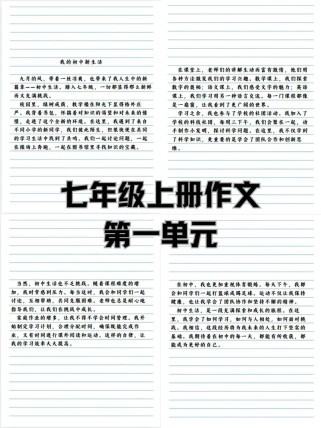 我的初中新生活
九月的风，带着一丝凉爽，也带来了我人生中的新
篇章——初中生活。踏入七年级，一切都显得那么新
鲜而又充满挑战。
校园里，绿树成荫，教学楼在阳光下显得格外庄
严。我背着书包，怀揣着对知识的渴望和对未来的憧
憬，走进了这个全新的环境。在这里，我遇到了来自
不同小学的新同学，我们彼此陌生，但很快就在共同
的学习生活中找到了共鸣。我们一起讨论问题，一起
在操场上奔跑，一起在图书馆里寻找知识的宝藏。
在课堂上，老师们的讲解生动而富有激情，他们用
各种方法激发我们的学习兴趣。数学课上，我们探索
数字的奥秘；语文课上，我们感受文字的魅力；英语
课上，我们学习用另一种语言交流。每一门课程都像
是一扇窗，让我看到了更广阔的世界。
学习之余，我也参与了学校的各种社团活动。我加入了
学校的科技社团，每周三下午，我们都会聚在一起，动
手制作小发明，探讨科学问题。在这里，我不仅学到
了科学知识，更重要的是学会了团队合作和创新思
维。
七年级上册作文
第一单元
当然，初中生活也不是挑战。随着课程难度的增
加，我时常感到压力。每当这时，我会和同学们一起
讨论，互相帮助，共同克服困难。老师也总是耐心地
指导我们，让我们在挑战中成长。
家庭作业的增多，让我不得不学会时间管理。我开
始制定学习计划，合理分配时间，确保既能完成作
业，又有时间进行课外阅读和运动。这样的自律，让
我的学习效率大大提高。
在初中，我也更加重视体育锻炼。每天下午，我都
会和同学们一起打篮球或踢足球，运动不仅让我保持
健康，也让我学会了团队协作和坚持不懈的精神。
初中生活，是一段充满探索和成长的旅程。在这
里，我学会了如何学习，如何与人相处，如何面对挑
战。我相信，这段经历将为我未来的人生打下坚实的
基础。我期待着在初中的每一天，都能有所收获，都
能成为更好的自己。